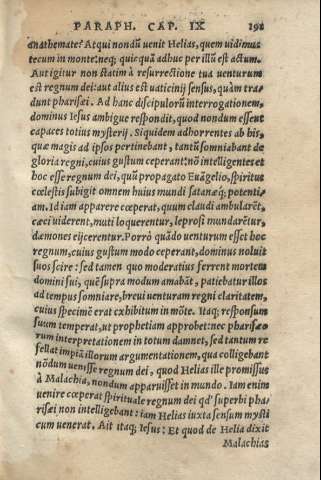 PARAPH. CAP. IX 191
anathemate? Atqui nondū venit Helias, quem vidimus
tecum in monte: neq; quicquā adhuc per illū est actum.
Aut igitur non statim à resurrectione tua venturum
est regnum dei: aut alius est vaticinij sensus, quàm tra-
dunt pharisæi. Ad hanc discipulorū interrogationem,
dominus Iesus ambigue respondit, quod nondum essent
capaces totius mysterij. Siquidem adhorrentes ab his,
quæ magis ad ipsos pertinebant, tantū somniabant de
gloria regni, cuius gustum ceperant: nō intelligentes et
hoc esse regnum dei, quū propagato Euāgelio, spiritus
cœlestis subigit omnem huius mundi satanæq; potenti-
am. Id iam apparere cœperat, quum claudi ambularēt,
cæci viderent, muti loquerentur, leprosi mundarētur,
dæmones eijcerentur. Porrò quādo venturum esset hoc
regnum, cuius gustum modo ceperant, dominus noluit
suos scire: sed tamen quo moderatius ferrent mortem
domini sui, quē supra modum amabāt, patiebatur illos
ad tempus somniare, breui venturam regni claritatem,
cuius specimē erat exhibitum in mōte. Itaq; responsum
suum temperat, ut prophetiam approbet: nec pharisæo
rum interpretationem in totum damnet, sed tantum re
fellat impiā illorum argumentationem, qua colligebant
nōdum venisse regnum dei, quod Helias ille promissus
à Malachia, nondum apparuisset in mundo. Iam enim
venire cœperat spirituale regnum dei qd' superbi pha
risæi non intelligebant: iam Helias iuxta sensum mysti
cum venerat. Ait itaq; Iesus: Et quod de Helia dixit
Malachias